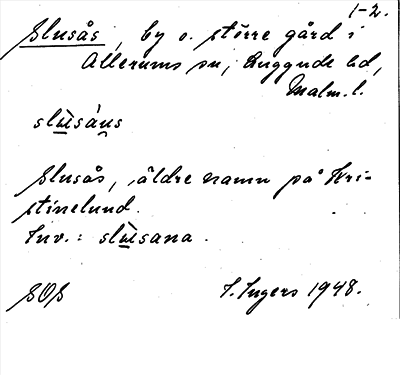 1-2.
Slusås, by o. större gård i
Allerums sn, Luggude hd,
Malm. l.
slùsáu̯s
Slusås, äldre namn på Kri-
stinelund.
Inv.: slùsana.
SOS
I. Ingers 1948.